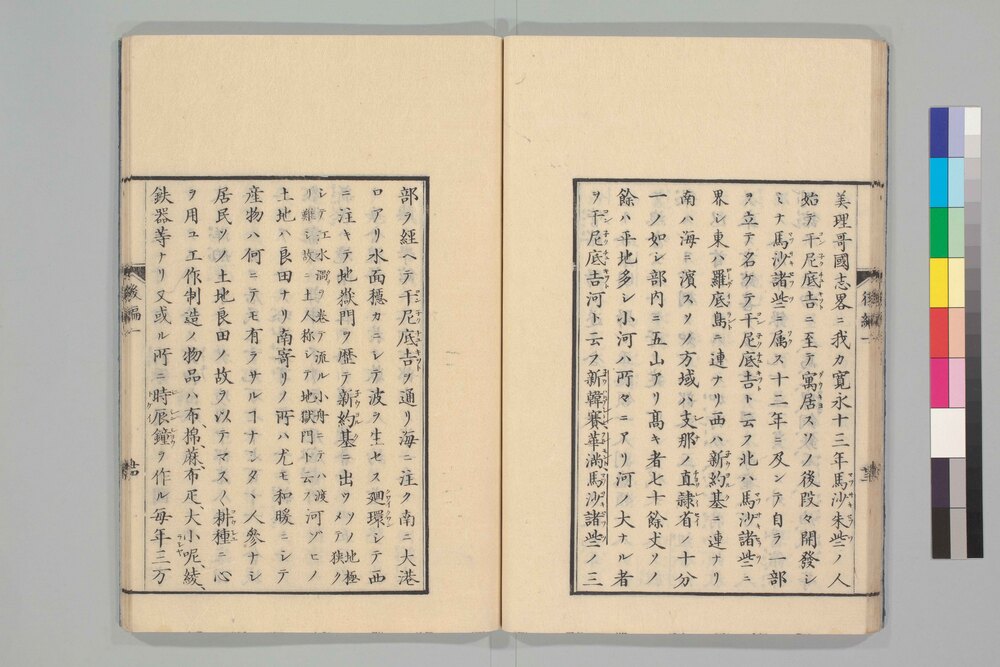 美理哥國志畧ニ我カ寛永十三年馬沙朱些ノ人
始テ干尼底吉ニ至テ寓居スソノ後段々開發シ
ミナ馬沙諸些ニ属ス十二年ニ及ンテ自ラ一部
ヲ立テ名ケテ干尼底吉ト云フ北ハ馬沙諸些ニ
界シ東ハ羅底島ニ連ナリ西ハ新約基ニ連ナリ
南ハ海ニ濱スソノ方域ハ支那ノ直隷省ノ十分
一ノ如シ部内ニ五山アリ髙キ者七十餘丈ソノ
餘ハ平地多シ小河ハ所々ニアリ河ノ大ナル者
ヲ干尼底吉河ト云フ新韓賽華満馬沙諸些ノ三
部ヲ經ヘテ干尼底吉ヲ通リ海ニ注ク南ニ大港
ロアリ水面穏カニシテ波ヲ生セス廻環シテ西
ニ注キテ地獄門ヲ歴テ新約基ニ出ツソノ地極メテ狭ク
シテ江水瀾ヲ巻テ流ル小舟ニテハ渡
リ難シ故ニ土人称シテ地獄門ト云フ河ゾヒノ
土地ハ良田ナリ南寄リノ所ハ尤モ和暖ニシテ
産物ハ何ニテモ有ラサルコナシタヽ人參ナシ
居民ソノ土地良田ノ故ヲ以テマスノ耕種ニ心
ヲ用ユ工作制造ノ物品ハ布、棉、蔴、布疋、大小呢、綾、
鉄器等ナリ又或ル所ニ時辰鐘ヲ作ル毎年三万
後編一
後編一